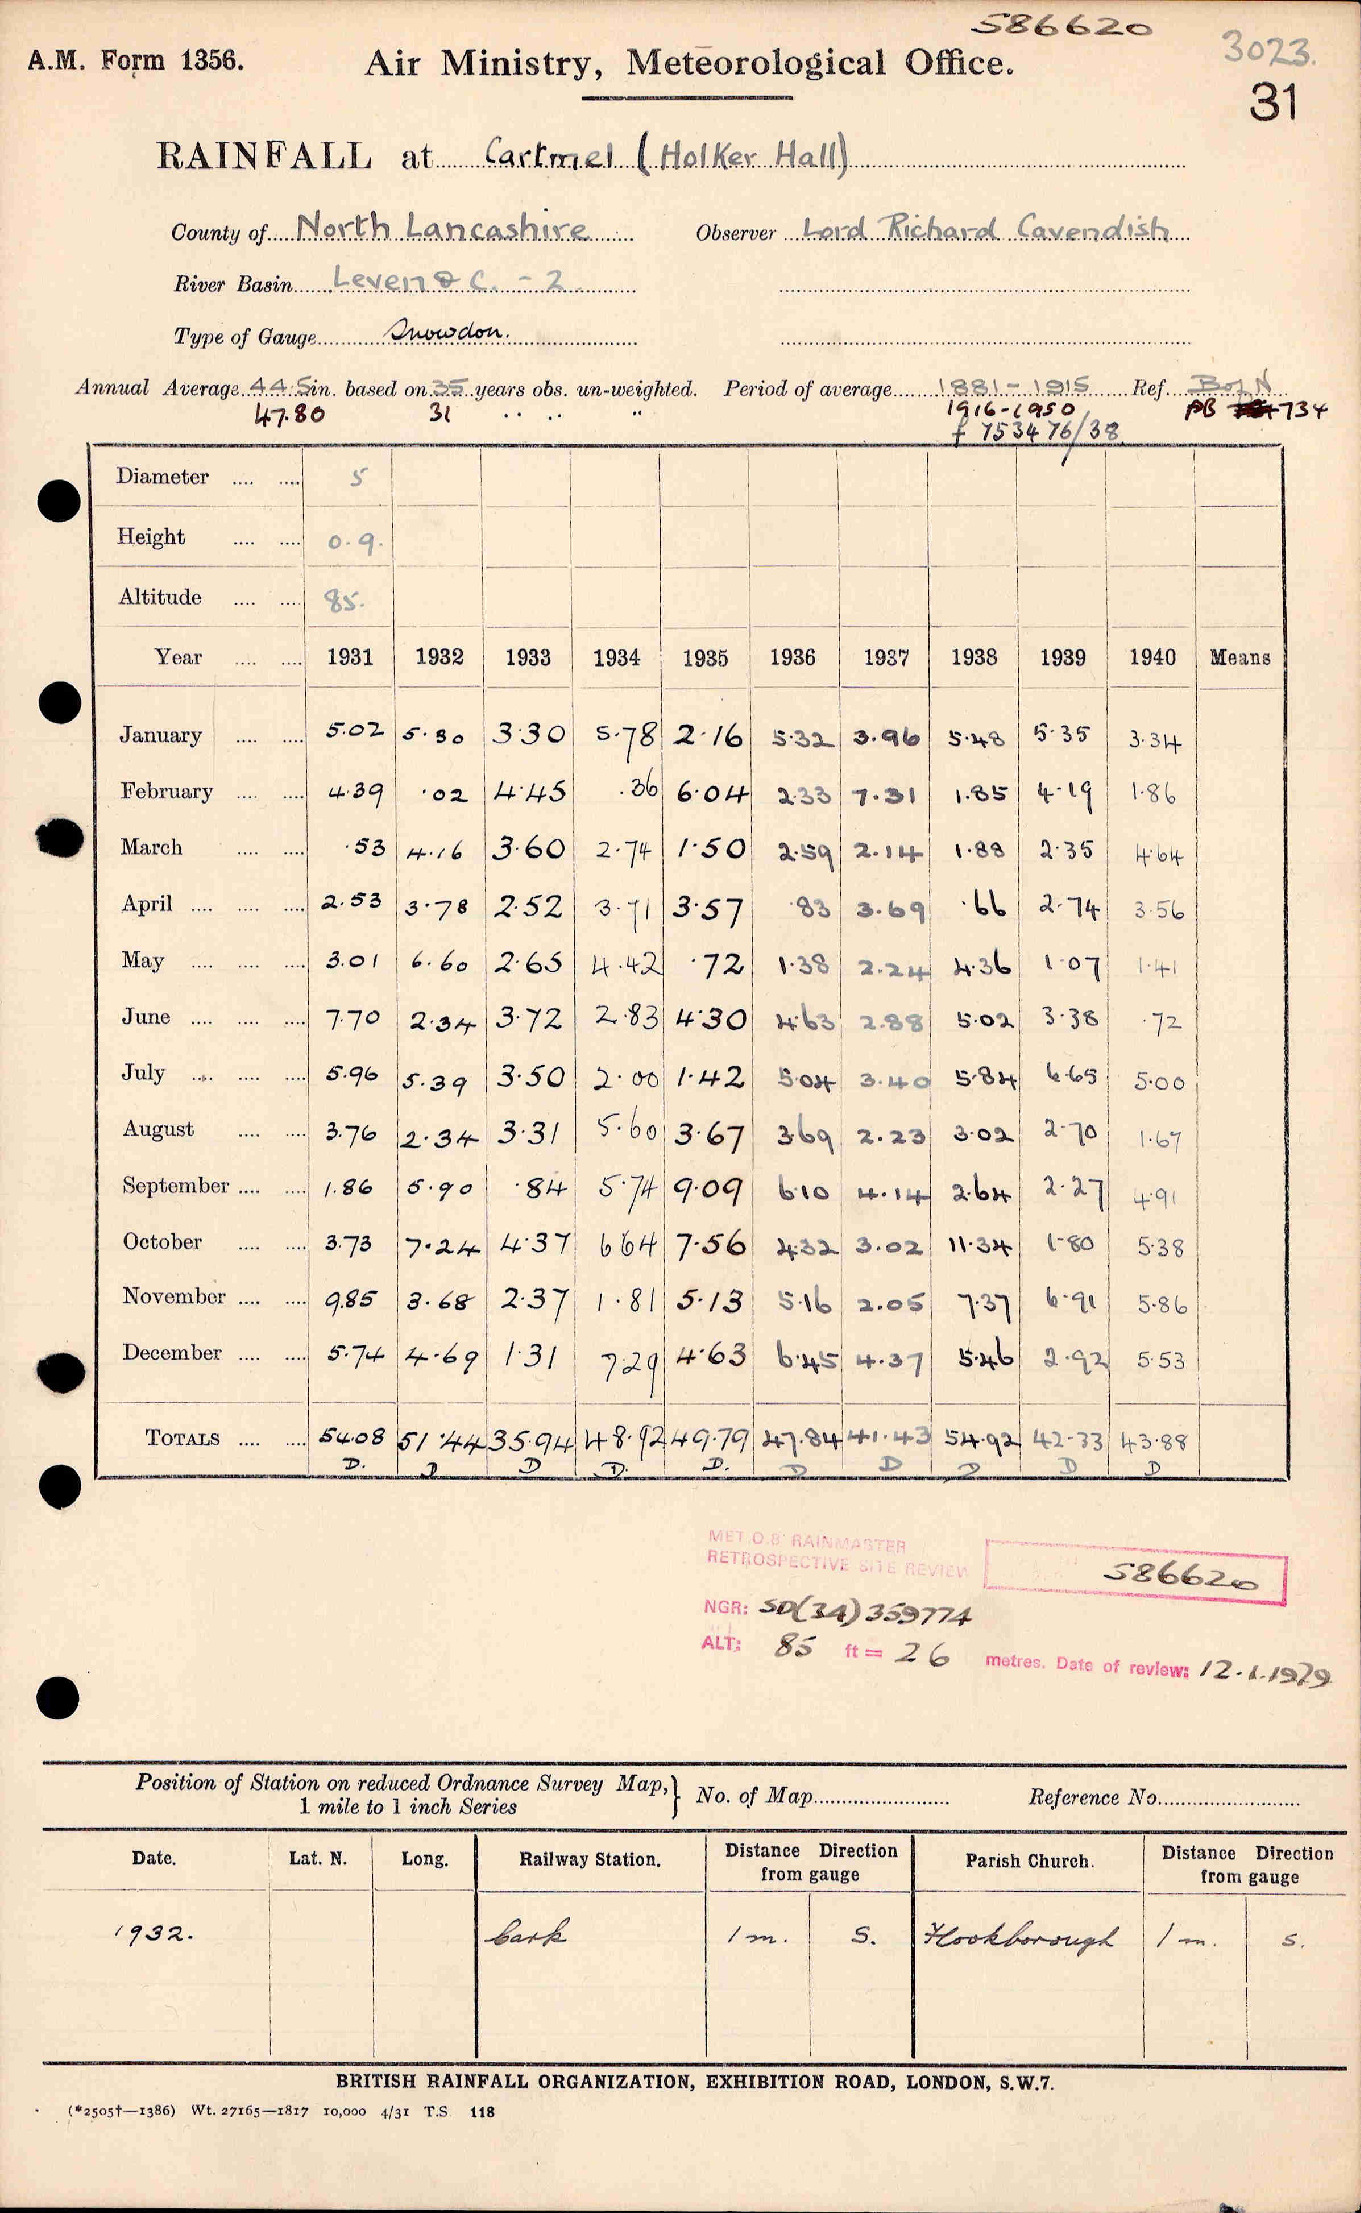 586620
3023.
A.M. Form 1356. Air Ministry, Meteorological Office.
31
RAINFALL at Cartmel (Holker Hall)
County of North Lancashire Observer Lord Richard Cavendish
River Basin Leven & C. - 2
Type of Gauge Snowdon.
Annual Average 44.5 in. based on 35 years obs. un-weighted. Period of average 1881-1915 Ref. B of N
47.80 31 .. .. " 1916-1950 PB 734
f 753476/38
Diameter .... .... 5
Height .... .... 0.9.
Altitude .... .... 85.
Year .... .... 1931 1932 1933 1934 1935 1936 1937 1938 1939 1940 Means
January .... .... 5.02 5.30 3.30 5.78 2.16 5.32 3.96 5.48 5.35 3.34
February .... .... 4.39 .02 4.45 .36 6.04 2.33 7.31 1.85 4.19 1.86
March .... .... .53 4.16 3.60 2.74 1.50 2.59 2.14 1.88 2.35 4.64
April .... .... .... 2.53 3.78 2.52 3.71 3.57 .83 3.69 .66 2.74 3.56
May .... .... .... 3.01 6.60 2.65 4.42 .72 1.38 2.24 4.36 1.07 1.41
June .... .... .... 7.70 2.34 3.72 2.83 4.30 4.63 2.88 5.02 3.38 .72
July .... .... .... 5.96 5.39 3.50 2.00 1.42 5.04 3.40 5.84 6.65 5.00
August .... .... 3.76 2.34 3.31 5.60 3.67 3.69 2.23 3.02 2.70 1.67
September .... .... 1.86 5.90 .84 5.74 9.09 6.10 4.14 2.64 2.27 4.91
October .... .... 3.73 7.24 4.37 6.64 7.56 4.32 3.02 11.34 1.80 5.38
November .... .... 9.85 3.68 2.37 1.81 5.13 5.16 2.05 7.37 6.91 5.86
December .... .... 5.74 4.69 1.31 7.29 4.63 6.45 4.37 5.46 2.92 5.53
TOTALS .... .... 54.08 51.44 35.94 48.92 49.79 47.84 41.43 54.92 42.33 43.88
D. D D D. D. D D D D D
MET O.8 RAINMASTER
RETROSPECTIVE SITE REVIEW 586620
NGR: SD(34)359774
ALT: 85 ft = 26 metres. Date of review: 12.1.1979
Position of Station on reduced Ordnance Survey Map, } No. of Map Reference No.
1 mile to 1 inch Series
Date. Lat. N. Long. Railway Station. Distance Direction from gauge Parish Church. Distance Direction from gauge
1932. Cark 1 m. S. Flookborough 1 m. S.
BRITISH RAINFALL ORGANIZATION, EXHIBITION ROAD, LONDON, S.W.7.
(*2505†—1386) Wt. 27165—1817 10,000 4/31 T.S. 118